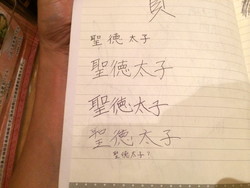 頁
聖徳太子
聖徳太子
聖徳太子
聖徳太子
聖徳太子?